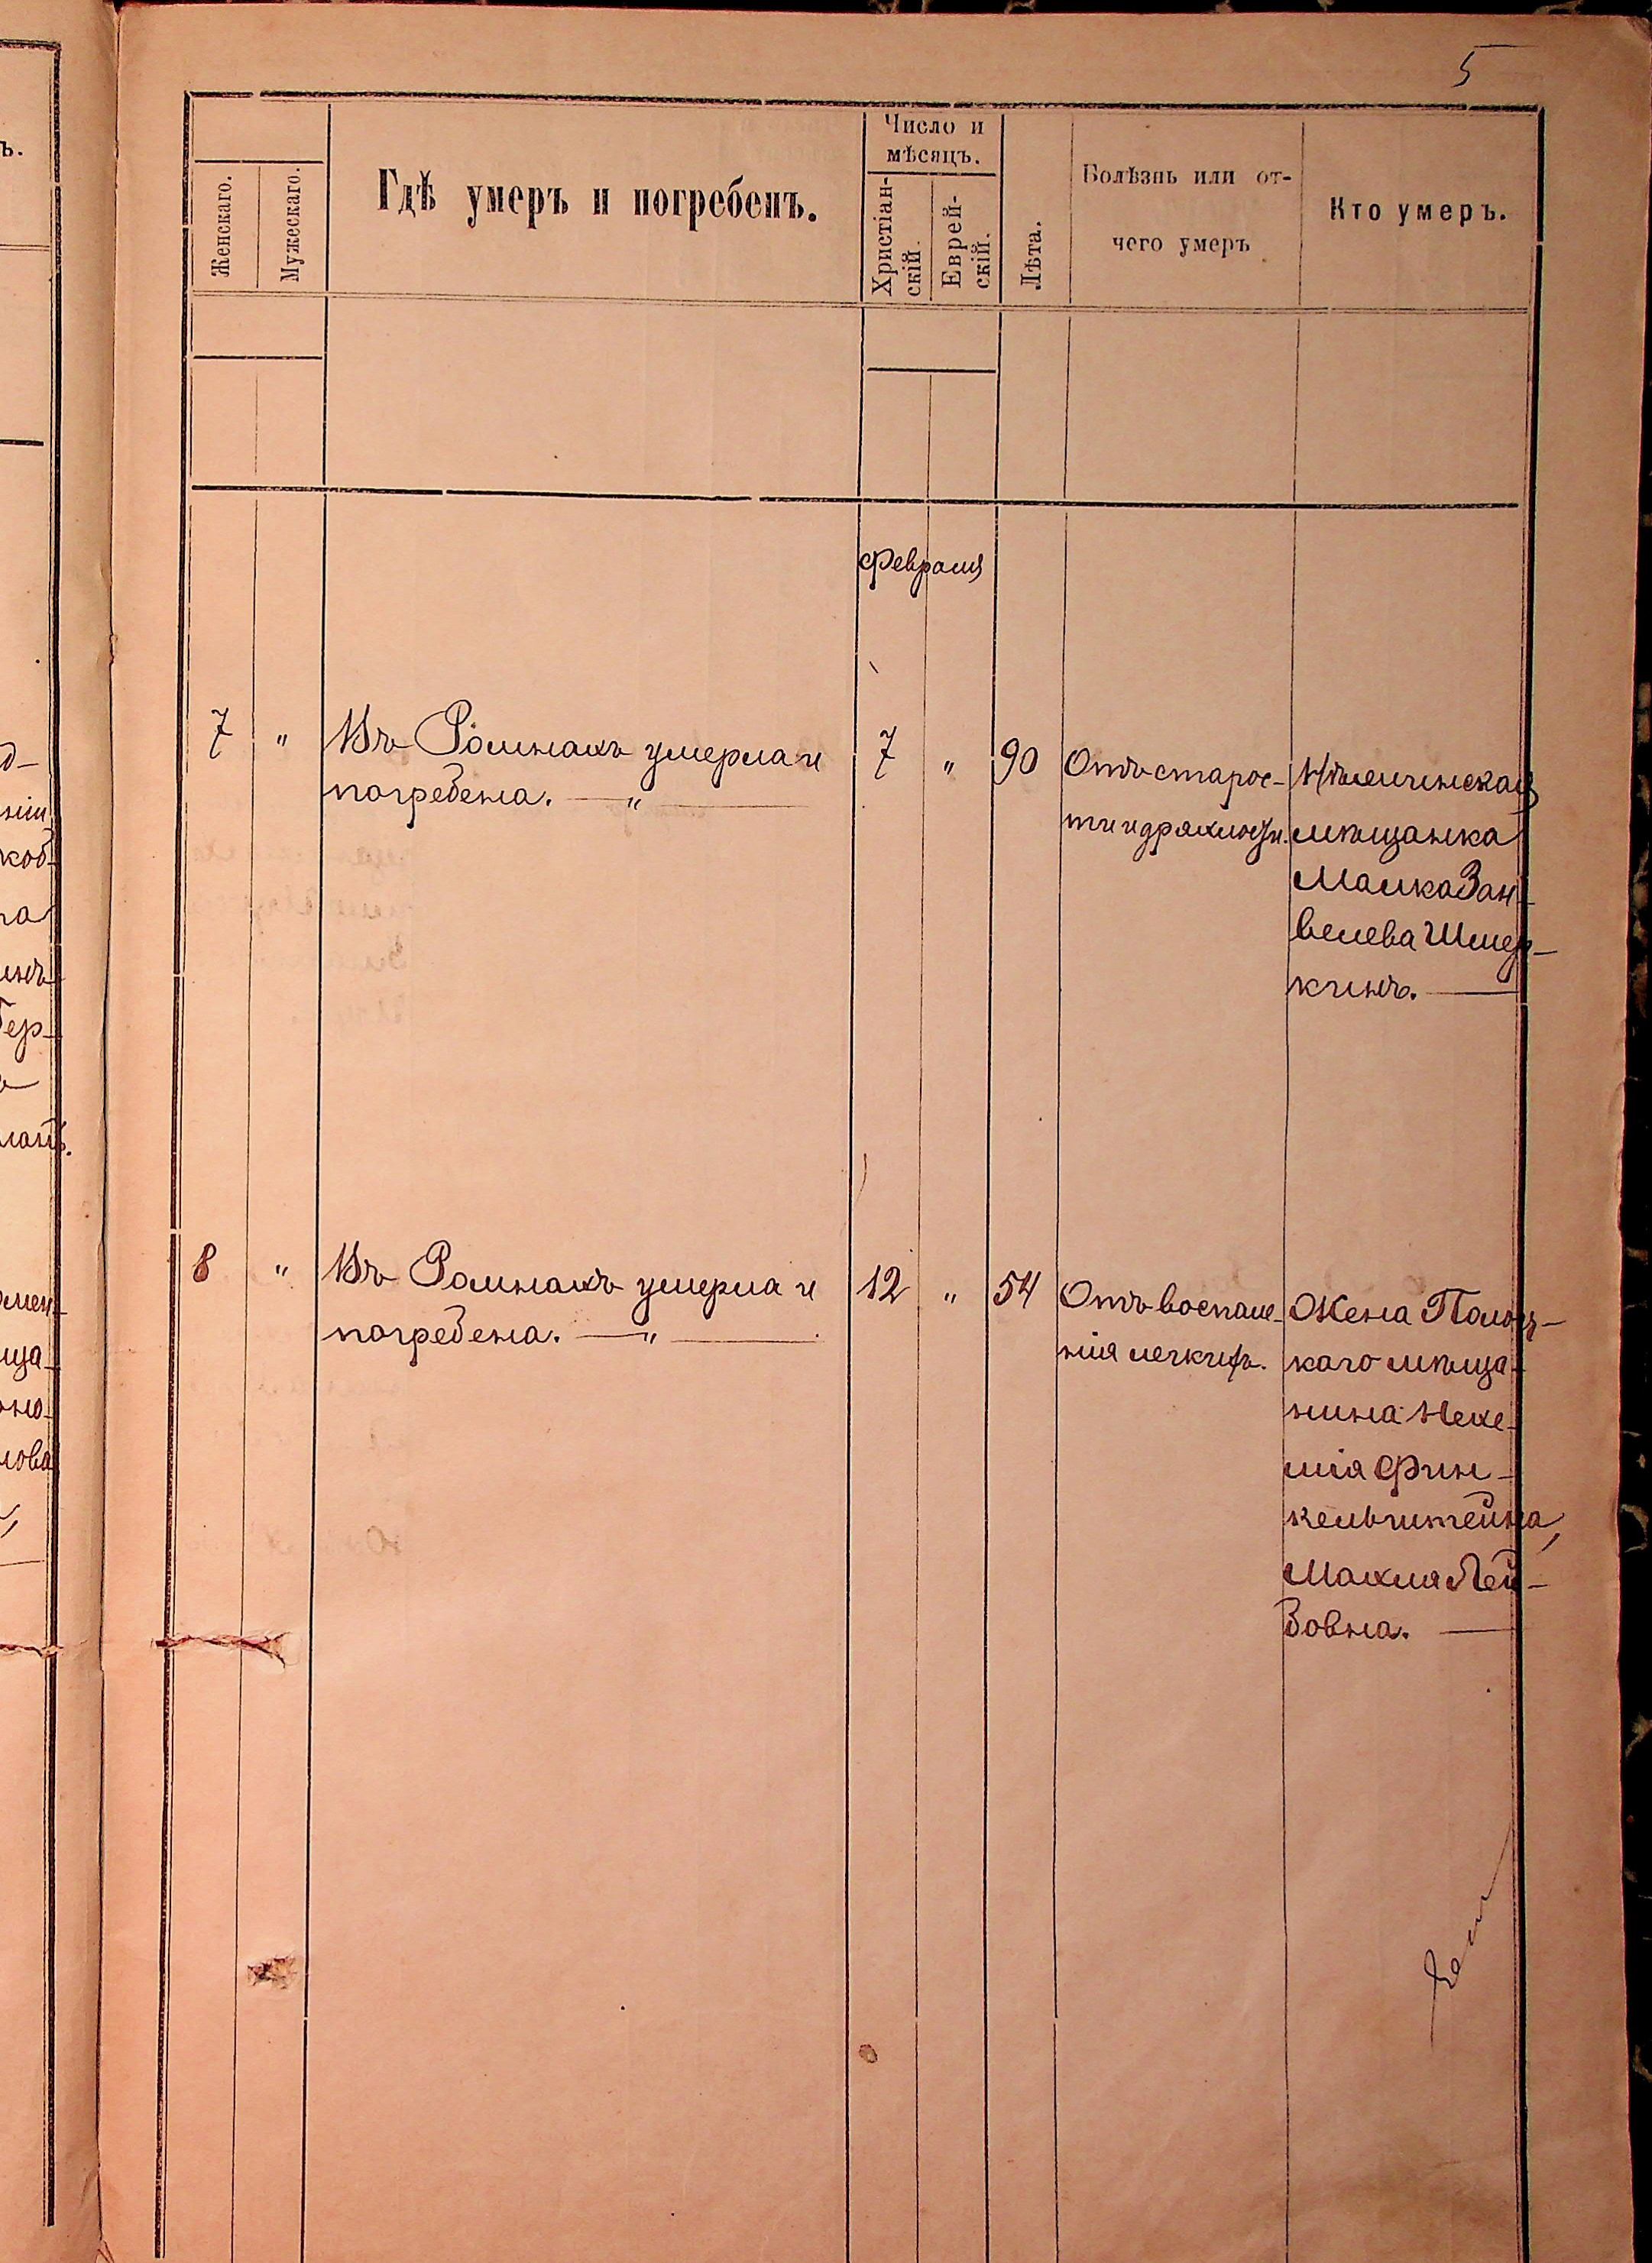 5
Женскаго.
Мужескаго.
Гдѣ умеръ и погребенъ.
Число и
мѣсяцъ.
Христіан-
скій.
Еврей-
скій.
Лѣта.
Болѣзнь или от-
чего умеръ
Кто умеръ.
Февраля
7 " Въ Ромнахъ умерла и
погребена. — " —
7 " 90
Отъ старос-
ти и дряхлости.
мѣщанка
Малка Зан-
велева Шмер-
кинъ. —
8 " Въ Ромнахъ умерла и
погребена. — " —
12 " 54
Отъ воспале-
нія легкихъ.
Жена Полоц-
каго мѣща-
нина Нехе-
мія Фин-
кельштейна,
Махля Лей-
зовна. —
ъ.
д-
ніи
коб-
на
инъ
Бер-
мен-
ща-
оно-
нова